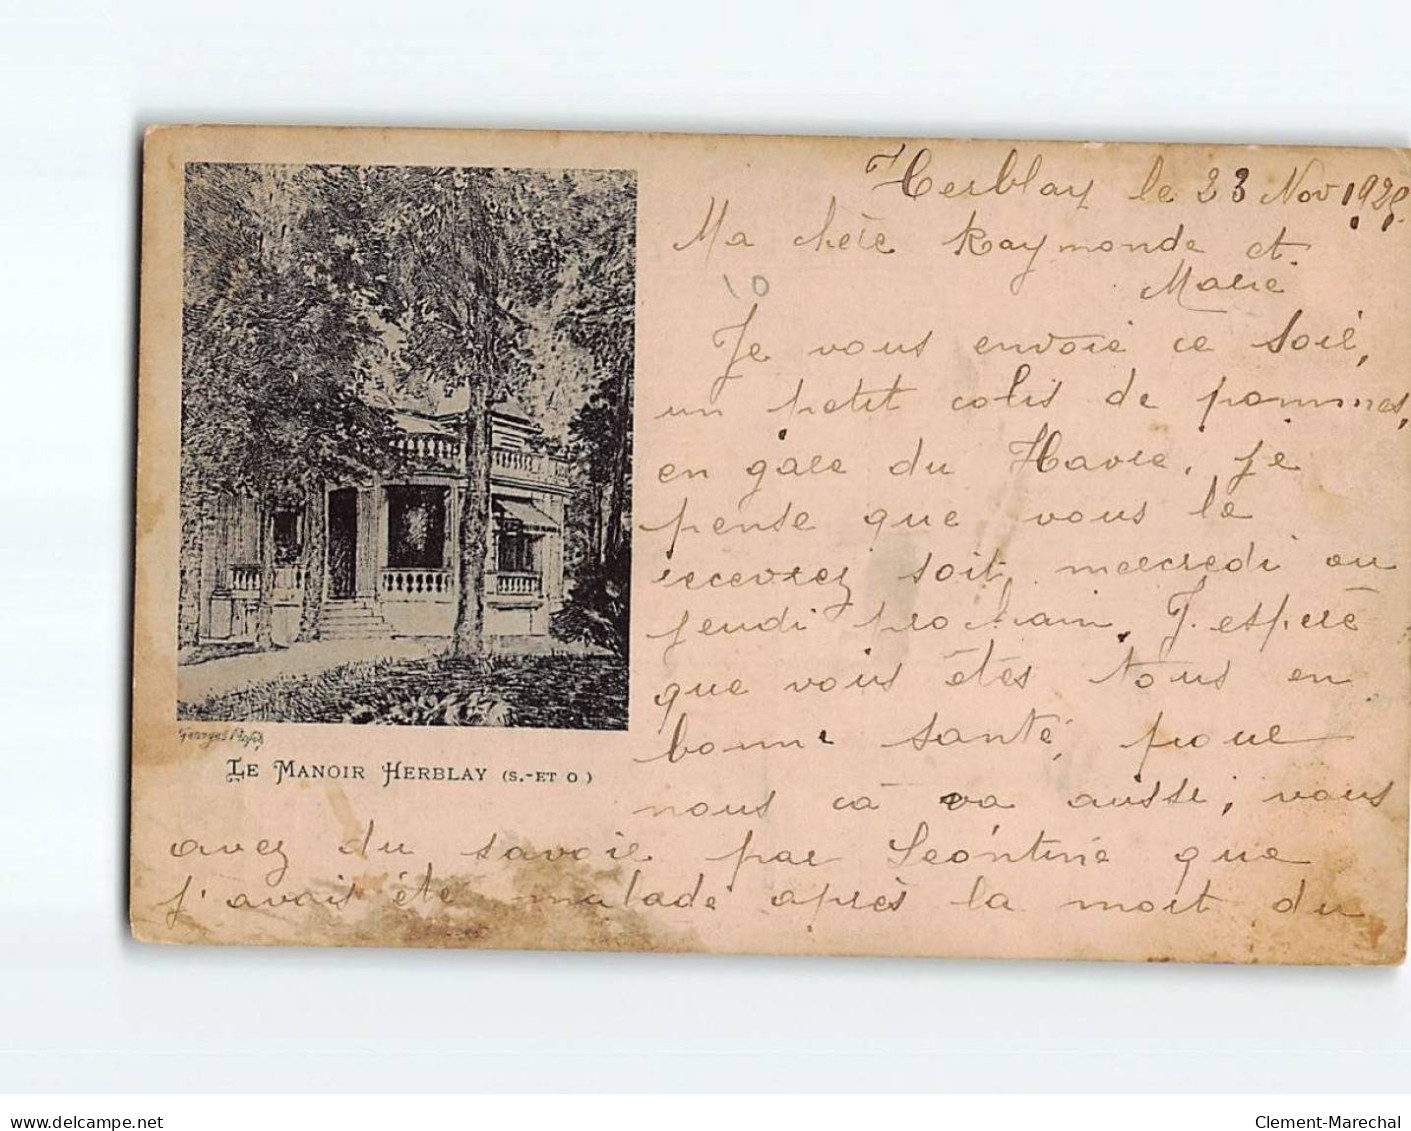 Herblay le 23 Nov 192
Ma chère Raymonde et
Marie
10
Je vous envoie ce soir,
un petit colis de pommes,
en gare du Havre. Je
pense que vous le
recevrez soit mercredi ou
jeudi prochain. J'espère
que vous êtes tous en
bonne santé, pour
nous ca va aussi, vous
avez du savoir par Léontine que
j'avais été malade après la mort du
Georges
LE MANOIR HERBLAY (S.-ET O)
www.delcampe.net
Clement-Marechal